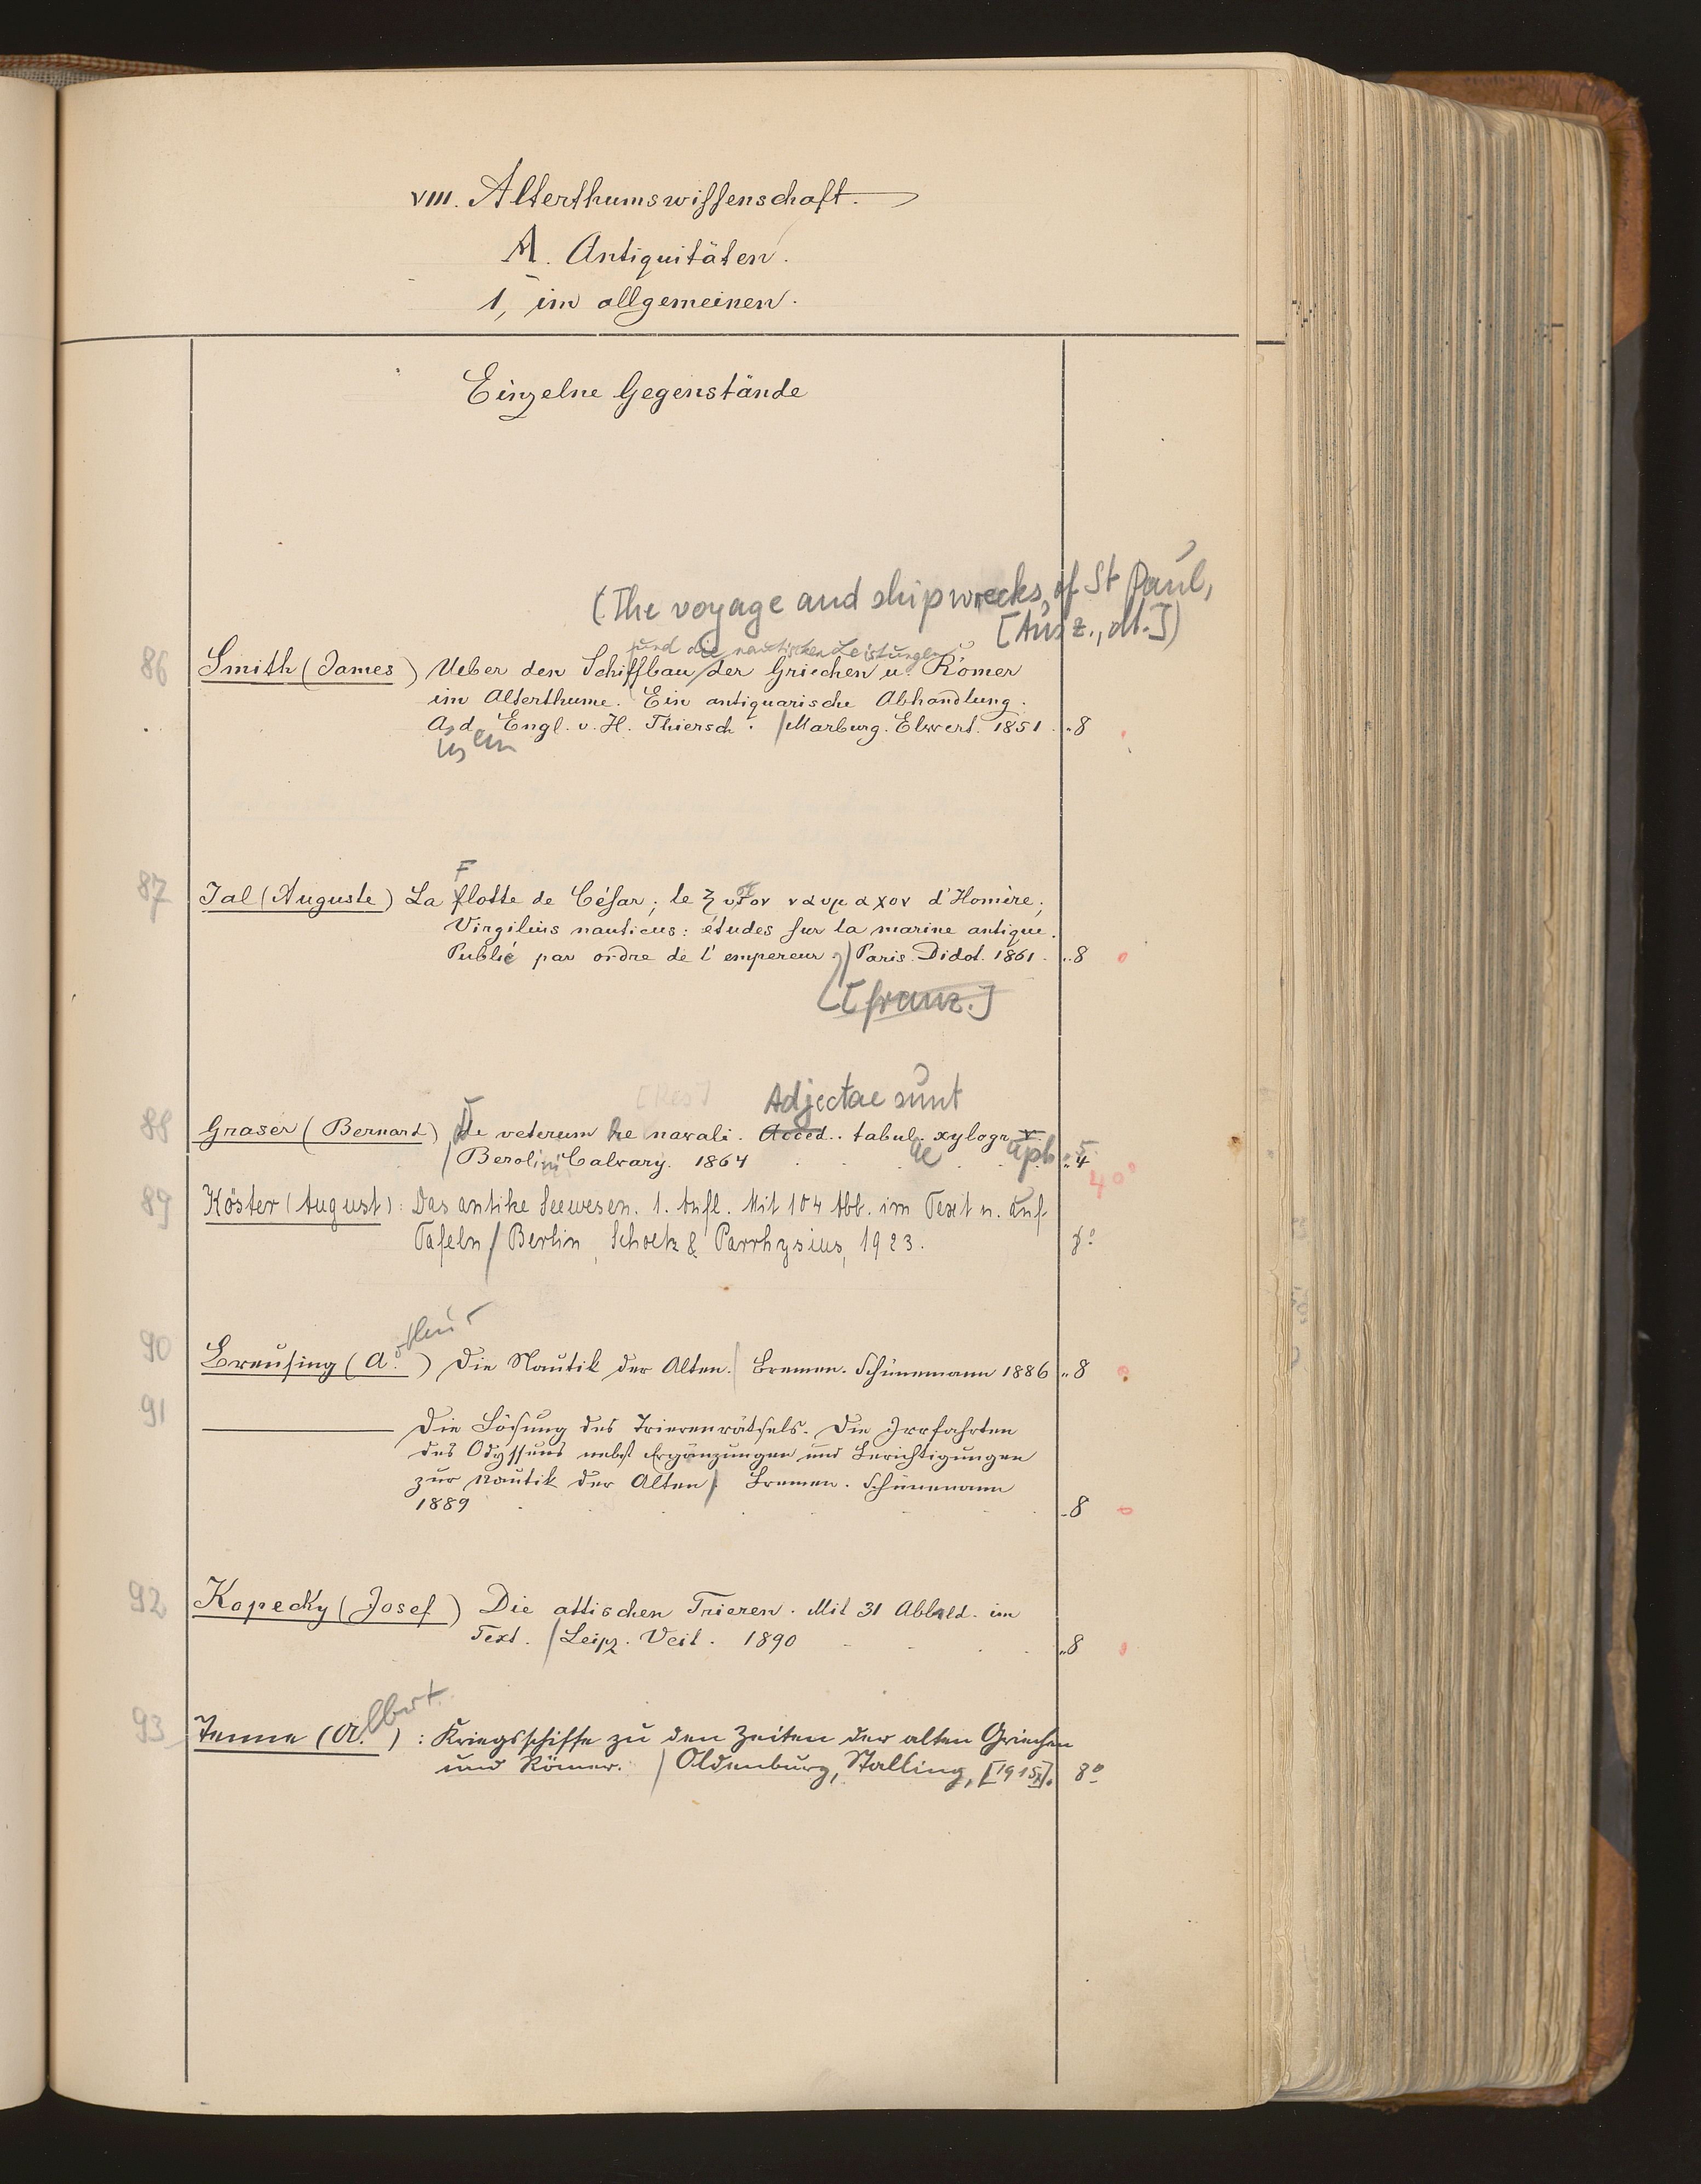 VIII. Alterthumswissenschaft.
A. Antiquitäten.
1, im allgemeinen.
Einzelne Gegenstände
(The voyage and shipwrecks of St Paul,
[Ausz., dt.])
und die nautischen Leistungen
86 Smith (James) Ueber den Schiffbau der Griechen u. Römer
im Alterthume. Ein antiquarische Abhandlung.
A. d. Engl. v. H. Thiersch. / Marburg. Elwert. 1851. „8
us em
F
87 Jal (Auguste) La flotte de César; le ξυστον ναυμαχον d'Homère;
Virgilius nauticus: études sur la marine antique.
Publié par ordre de l'empereur. / Paris. Didot. 1861. „8
[franz.]
[Res] Adjectae sunt
88 Graser (Bernard) De veterum re navali. Acced.. tabul. xylogr. V.
Berolini Calvary. 1864 ae aph. 5. „4
4°
89 Köster (August): Das antike Seewesen. 1. Aufl. Mit 104 Abb. im Text u. auf
Tafeln / Berlin, Schoetz & Parrhysius, 1923. 8°
90 Breusing (A.) Die Nautik der Alten. / Bremen. Schünemann 1886 „8
91 ——— Die Lösung des Trierenrätsels. Die Irrfahrten
des Odysseus nebst Ergänzungen und Berichtigungen
zur Nautik der Alten / Bremen. Schünemann
1889 „8
92 Kopecky (Josef) Die attischen Trieren. Mit 31 Abbild. im
Text. / Leipz. Veit. 1890 „8
93 Tenne (Albert): Kriegsschiffe zu den Zeiten der alten Griechen
und Römer. / Oldenburg, Stalling, [1915]. 8°